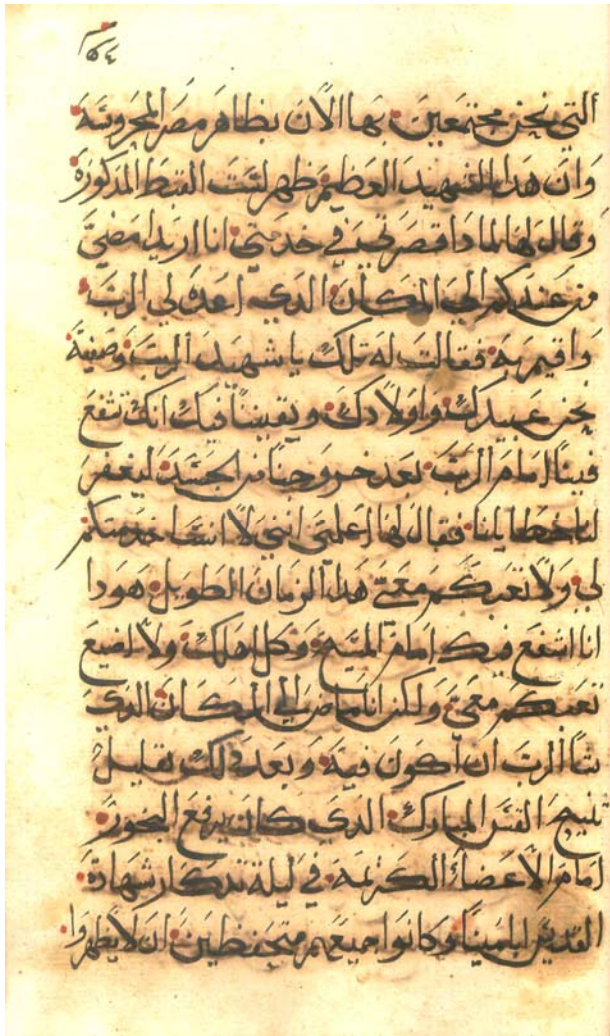 التي نحن مجتمعين بها الان بظاهر مصر المحروسة
وان هدا الشهيد العظيم ظهر لست القبط المدكورة
وقال لها لمادا قصرتي في خدمتي انا اريد امضي
من عندكم الي المكان الدي اعده لي الرب
واقيم به فقالت له تلك يا شهيد الرب وصفيه
نحن عبيدك واولادك ويقيننا فيك انك تشفع
فينا امام الرب بعد خروجنا من الجسد ليغفر
لنا خطايانا فقال لها اعلمي انني لا انسا خدمتكم
لي ولا تعبكم معي هدا الزمان الطويل هودا
انا اشفع فيك امام المسيح وكل اهلك ولا اضيع
تعبكم معي ولكن انا ماض الي المكان الدي
شا الرب ان اكون فيه وبعد دلك بقليل
تنيح القس المبارك الدي كان يرفع البخور
امام الاعضاء الكريمه في ليلة تدكار شهادة
القديس ابامينا وكانوا جميعهم متحفظين ان لا يظهروا